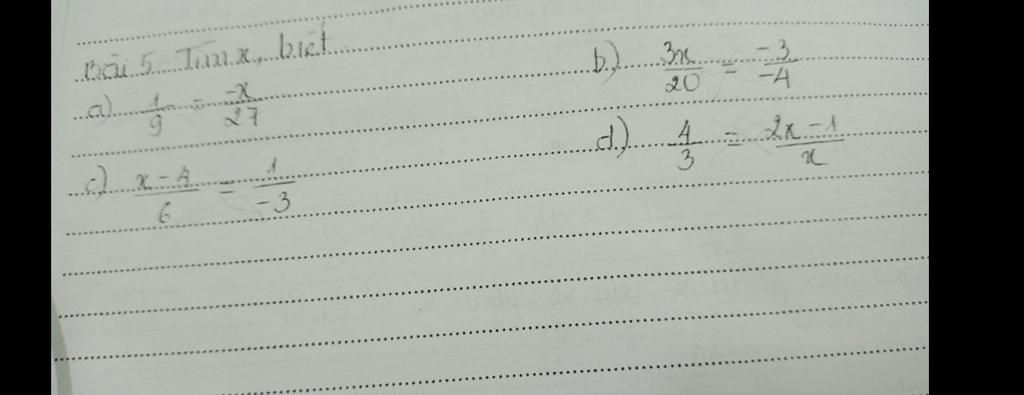 Bài 5 Tìm x, biết
a) 1/9 = -x/27
b.) 3x/20 = -3/-4
c) x-4/6 = 1/-3
d.) 4/3 = 2x-1/x